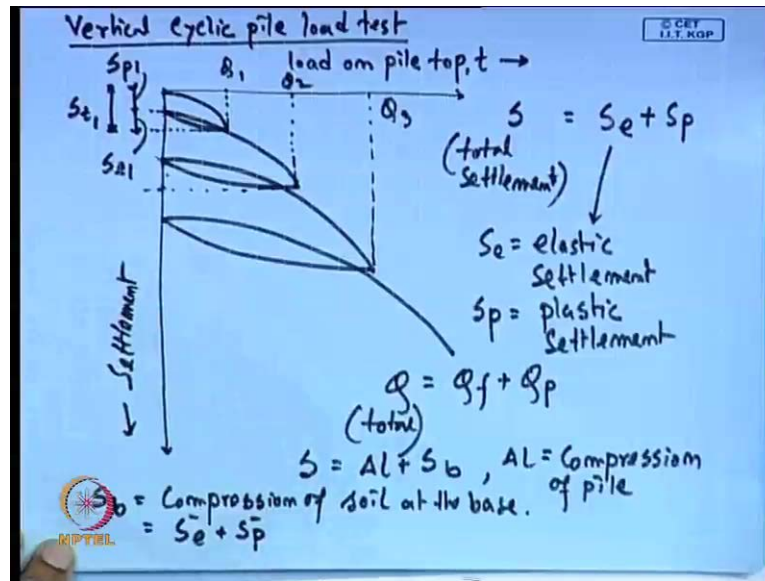 Vertical cyclic pile load test
© CET
I.I.T. KGP
Sp1
Q1
load on pile top, t →
Q2
St1
Q3
Se1
S = Se + Sp
(total settlement)
Se = elastic settlement
Sp = plastic settlement
← Settlement
Q = Qf + Qp
(total)
S = Al + Sb , AL = Compression of pile
Sb = Compression of soil at the base.
= Se + Sp
NPTEL